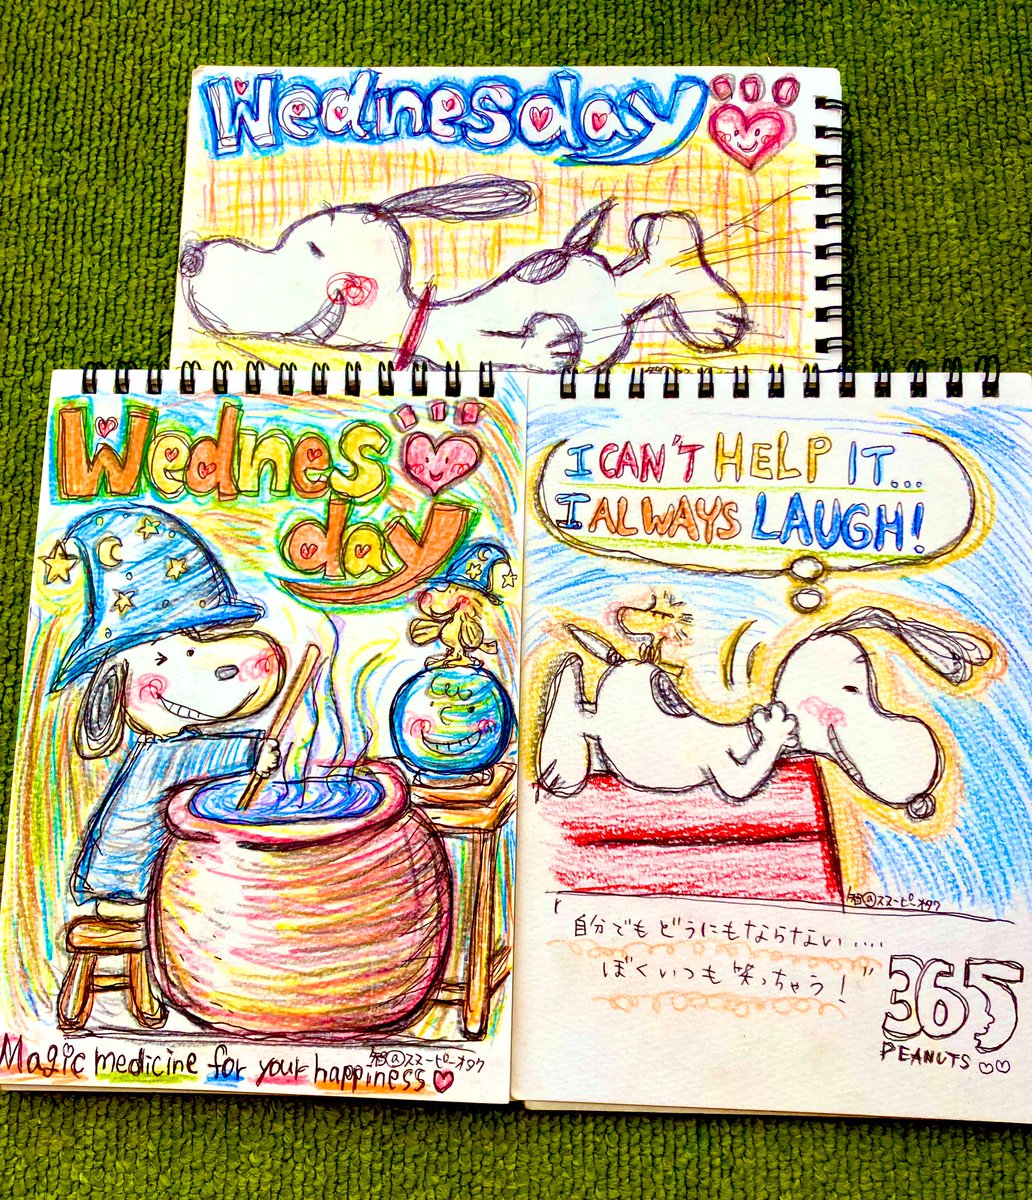 Wednesday
Wednes
day
Magic medicine for your happiness
智@スヌーピーオタク
I CAN'T HELP IT...
I ALWAYS LAUGH!
智@スヌーピーオタク
「自分でもどうにもならない....
ぼくいつも笑っちゃう!”
365
PEANUTS